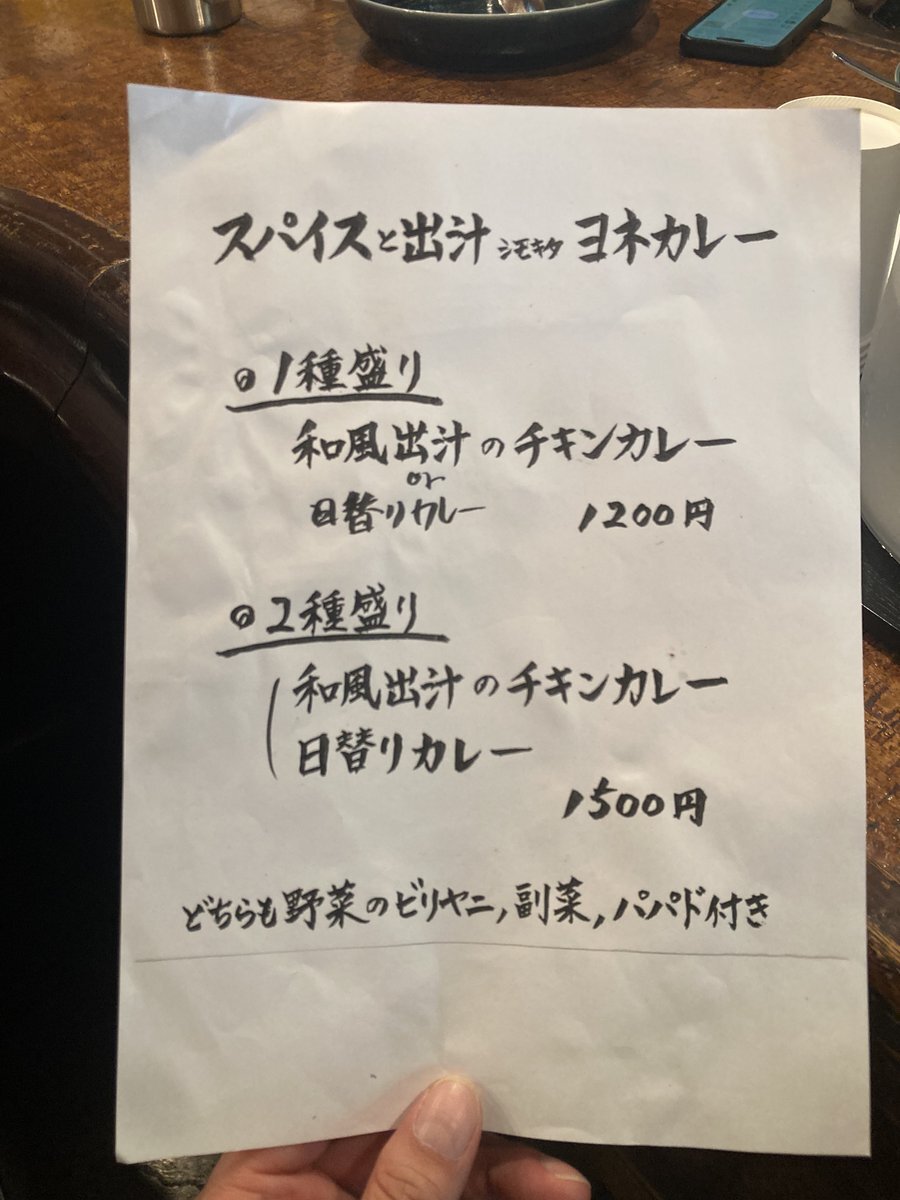 スパイスと出汁 シモキタ ヨネカレー
◎1種盛り
和風出汁のチキンカレー
or
日替りカレー 1200円
◎2種盛り
和風出汁のチキンカレー
日替りカレー
1500円
どちらも野菜のビリヤニ,副菜,パパド付き